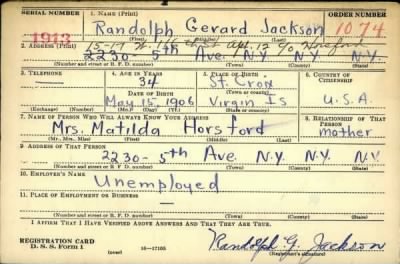 SERIAL NUMBER 1. NAME (Print) ORDER NUMBER
1913 Randolph Gerard Jackson 1074
(First) (Middle) (Last)
2. ADDRESS (Print) 15-17 W. Apt. 12 c/o Horsford
2230- 5th Ave. N.Y. N.Y.
(Number and street or R. F. D. number) (Town) (County) (State)
3. TELEPHONE 4. AGE IN YEARS 5. PLACE OF BIRTH 6. COUNTRY OF CITIZENSHIP
34 St. Croix
DATE OF BIRTH (Town or county)
May 15, 1906 Virgin Is U.S.A.
(Exchange) (Number) (Mo.) (Day) (Yr.) (State or country)
7. NAME OF PERSON WHO WILL ALWAYS KNOW YOUR ADDRESS 8. RELATIONSHIP OF THAT PERSON
Mrs. Matilda Horsford mother
(Mr., Mrs., Miss) (First) (Middle) (Last)
9. ADDRESS OF THAT PERSON
2230- 5th Ave. N.Y. N.Y. N.Y.
(Number and street or R. F. D. number) (Town) (County) (State)
10. EMPLOYER'S NAME
Unemployed
11. PLACE OF EMPLOYMENT OR BUSINESS
(Number and street or R. F. D. number) (Town) (County) (State)
I AFFIRM THAT I HAVE VERIFIED ABOVE ANSWERS AND THAT THEY ARE TRUE.
REGISTRATION CARD
D. S. S. FORM 1 (over) 16-17105 Randolph G. Jackson
(Registrant's signature)